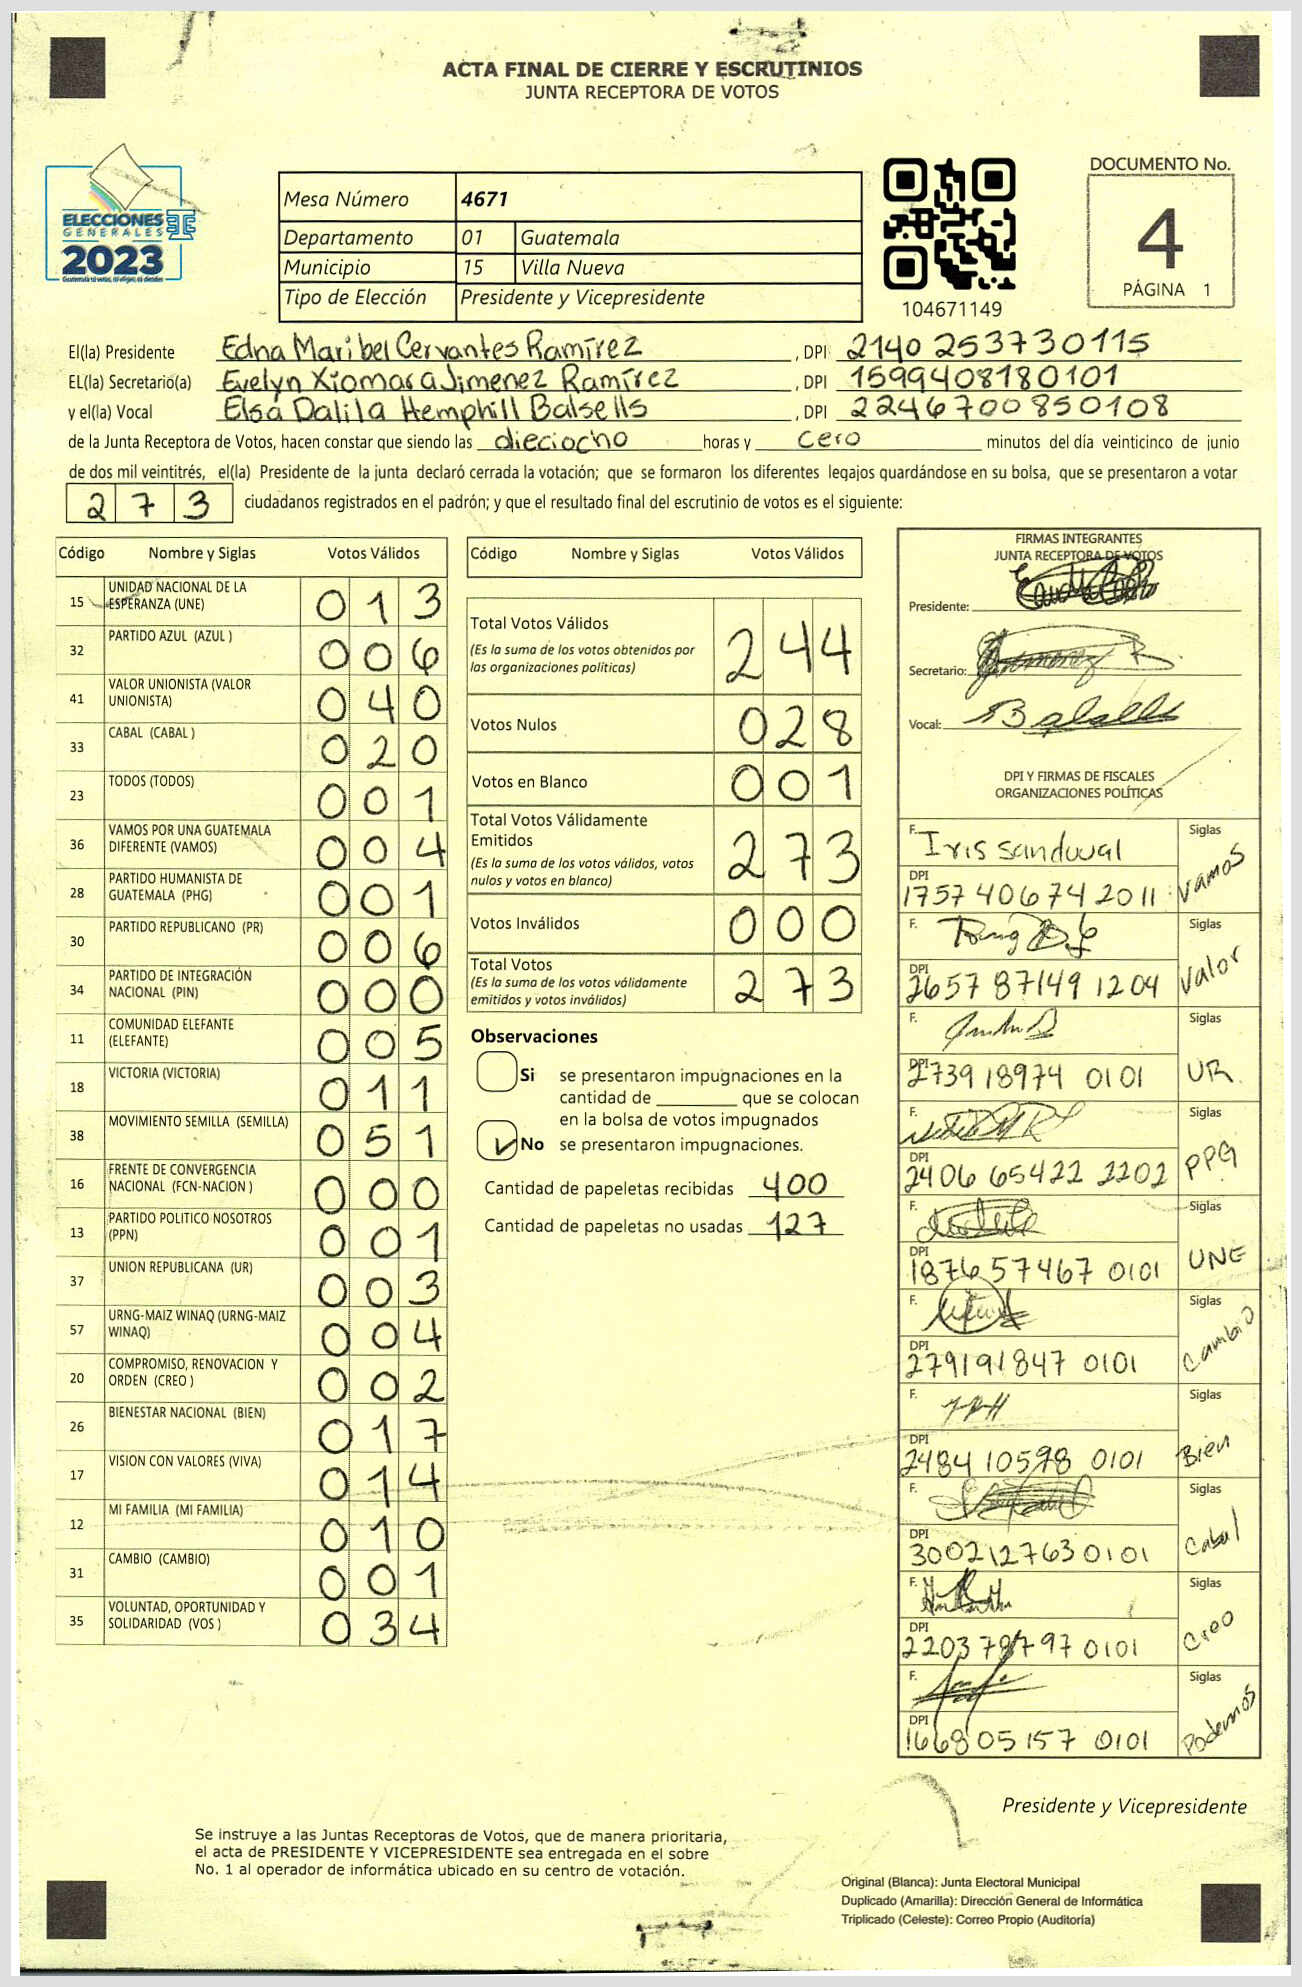 ACTA FINAL DE CIERRE Y ESCRUTINIOS
JUNTA RECEPTORA DE VOTOS
ELECCIONES
GENERALES
2023
Mesa Número 4671
Departamento 01 Guatemala
Municipio 15 Villa Nueva
Tipo de Elección Presidente y Vicepresidente
104671149
DOCUMENTO No.
4
PÁGINA 1
El(la) Presidente Edna Maribel Cervantes Ramírez , DPI 2140 253730115
EL(la) Secretario(a) Evelyn Xiomara Jimenez Ramírez , DPI 1599408180101
y el(la) Vocal Elsa Dalila Hemphill Balsells , DPI 2246700850108
de la Junta Receptora de Votos, hacen constar que siendo las dieciocho horas y cero minutos del día veinticinco de junio
de dos mil veintitrés, el(la) Presidente de la junta declaró cerrada la votación; que se formaron los diferentes legajos quardándose en su bolsa, que se presentaron a votar
273 ciudadanos registrados en el padrón; y que el resultado final del escrutinio de votos es el siguiente:
Código Nombre y Siglas Votos Válidos
15 UNIDAD NACIONAL DE LA ESPERANZA (UNE) 013
32 PARTIDO AZUL (AZUL ) 006
41 VALOR UNIONISTA (VALOR UNIONISTA) 040
33 CABAL (CABAL ) 020
23 TODOS (TODOS) 001
36 VAMOS POR UNA GUATEMALA DIFERENTE (VAMOS) 004
28 PARTIDO HUMANISTA DE GUATEMALA (PHG) 001
30 PARTIDO REPUBLICANO (PR) 006
34 PARTIDO DE INTEGRACIÓN NACIONAL (PIN) 000
11 COMUNIDAD ELEFANTE (ELEFANTE) 005
18 VICTORIA (VICTORIA) 011
38 MOVIMIENTO SEMILLA (SEMILLA) 051
16 FRENTE DE CONVERGENCIA NACIONAL (FCN-NACION ) 000
13 PARTIDO POLITICO NOSOTROS (PPN) 001
37 UNION REPUBLICANA (UR) 003
57 URNG-MAIZ WINAQ (URNG-MAIZ WINAQ) 004
20 COMPROMISO, RENOVACION Y ORDEN (CREO ) 002
26 BIENESTAR NACIONAL (BIEN) 017
17 VISION CON VALORES (VIVA) 014
12 MI FAMILIA (MI FAMILIA) 010
31 CAMBIO (CAMBIO) 001
35 VOLUNTAD, OPORTUNIDAD Y SOLIDARIDAD (VOS ) 034
Código Nombre y Siglas Votos Válidos
Total Votos Válidos 244
(Es la suma de los votos obtenidos por
las organizaciones políticas)
Votos Nulos 028
Votos en Blanco 001
Total Votos Válidamente
Emitidos 273
(Es la suma de los votos válidos, votos
nulos y votos en blanco)
Votos Inválidos 000
Total Votos 273
(Es la suma de los votos válidamente
emitidos y votos inválidos)
Observaciones
Si se presentaron impugnaciones en la
cantidad de ________ que se colocan
en la bolsa de votos impugnados
No se presentaron impugnaciones.
Cantidad de papeletas recibidas 400
Cantidad de papeletas no usadas 127
FIRMAS INTEGRANTES
JUNTA RECEPTORA DE VOTOS
Presidente:
Secretario:
Vocal:
DPI Y FIRMAS DE FISCALES
ORGANIZACIONES POLÍTICAS
F. Iris Sandoval Siglas Vamos
DPI 1757 40674 2011
F. Siglas Valor
DPI 2657 87149 1204
F. Siglas UR
DPI 2739 18974 0101
F. Siglas PPG
DPI 2406 65422 2202
F. Siglas UNE
DPI 1876 57467 0101
F. Siglas Cambio
DPI 2791 91847 0101
F. Siglas Bien
DPI 2484 10598 0101
F. Siglas Cabal
DPI 3002127630101
F. Siglas Creo
DPI 0101
F. Siglas Podemos
DPI 1668 05157 0101
Presidente y Vicepresidente
Se instruye a las Juntas Receptoras de Votos, que de manera prioritaria,
el acta de PRESIDENTE Y VICEPRESIDENTE sea entregada en el sobre
No. 1 al operador de informática ubicado en su centro de votación.
Original (Blanca): Junta Electoral Municipal
Duplicado (Amarilla): Dirección General de Informática
Triplicado (Celeste): Correo Propio (Auditoría)